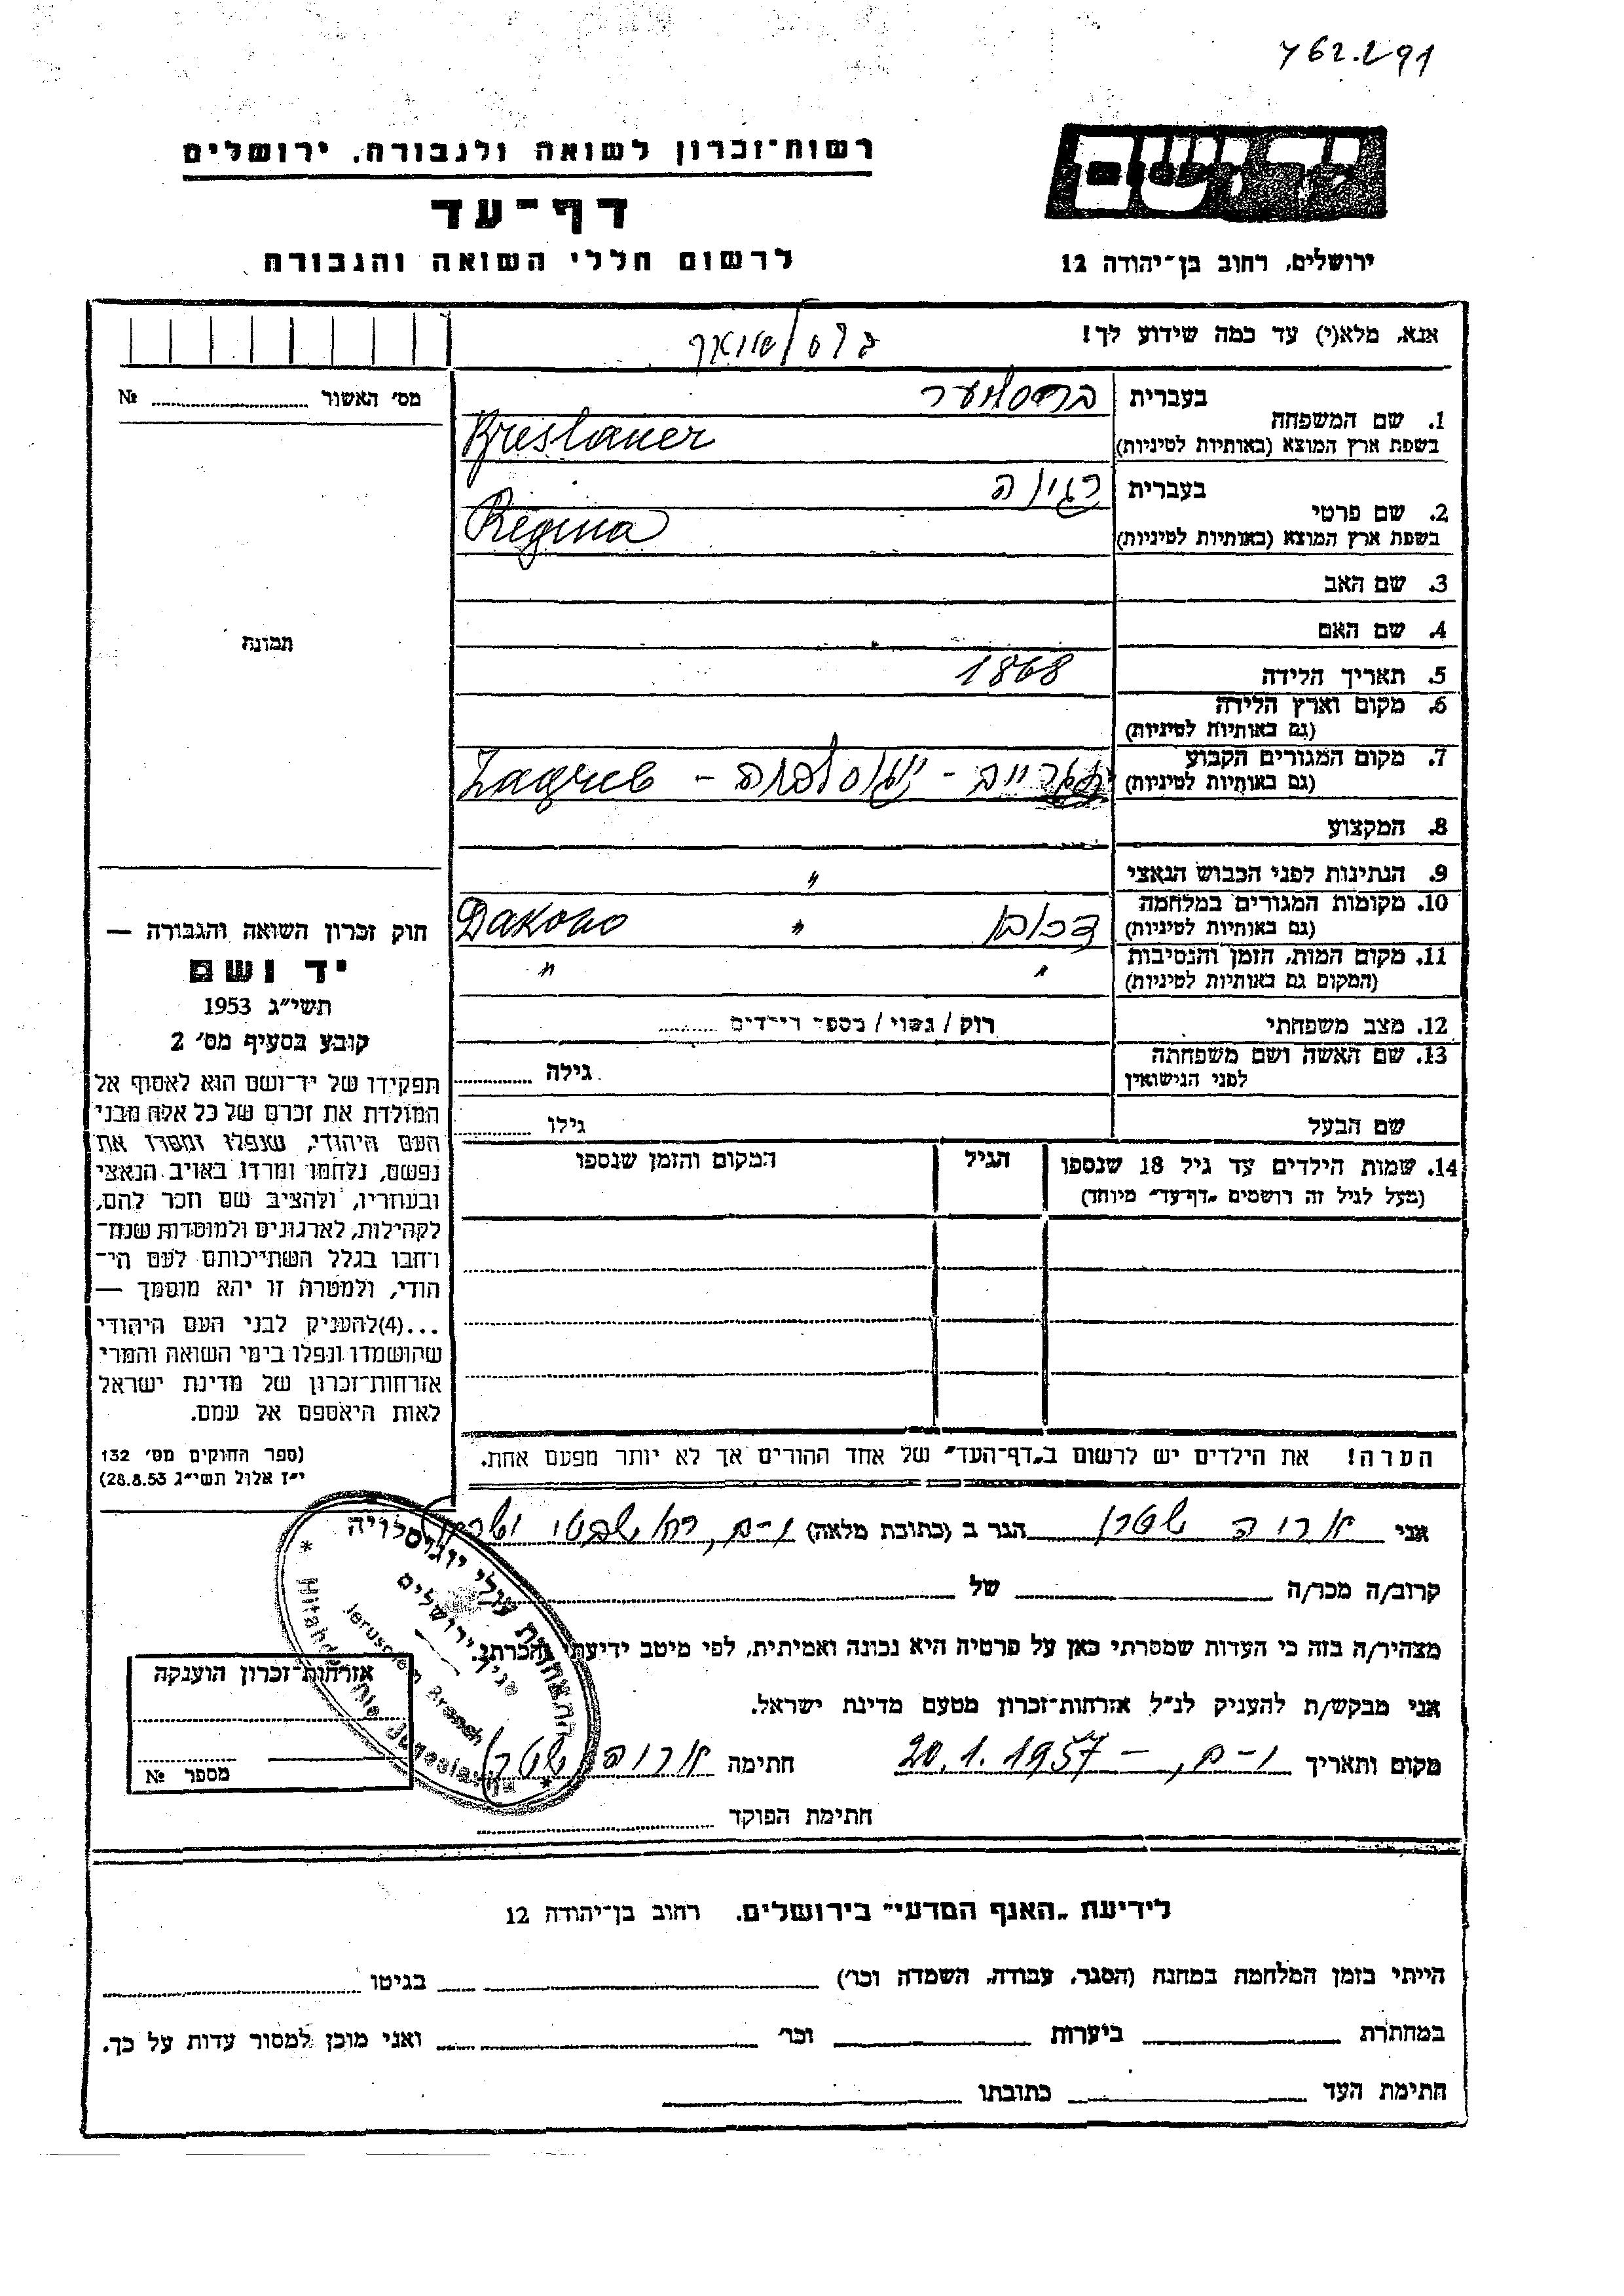 רשות־זכרון לשואה ולגבורה, ירושלים
דף־עד
לרשום חללי השואה והגבורה
יד ושם
ירושלים, רחוב בן־יהודה 12
אנא, מלא(י) עד כמה שידוע לך!
מס׳ האשור № ........
תמונה
1. שם המשפחה
בעברית
Breslauer
בשפת ארץ המוצא (באותיות לטיניות)
2. שם פרטי
בעברית רגינה
Regina
בשפת ארץ המוצא (באותיות לטיניות)
3. שם האב
4. שם האם
5. תאריך הלידה 1868
6. מקום וארץ הלידה
(גם באותיות לטיניות)
7. מקום המגורים הקבוע
(גם באותיות לטיניות)
Zagreb -
8. המקצוע
9. הנתינות לפני הכבוש הנאצי "
10. מקומות המגורים במלחמה
(גם באותיות לטיניות)
Đakovo "
11. מקום המות, הזמן והנסיבות
(המקום גם באותיות לטיניות)
" "
12. מצב משפחתי רוק / נשוי / מספר הילדים ........
13. שם האשה ושם משפחתה
לפני הנישואין
גילה ........
שם הבעל
גילו ........
14. שמות הילדים עד גיל 18 שנספו
(מעל לגיל זה רושמים „דף־עד״ מיוחד)
הגיל
המקום והזמן שנספו
הערה! את הילדים יש לרשום ב„דף־העד״ של אחד ההורים אך לא יותר מפעם אחת.
חוק זכרון השואה והגבורה —
יד ושם
תשי״ג 1953
קובע בסעיף מס׳ 2
תפקידו של יד־ושם הוא לאסוף אל
המולדת את זכרם של כל אלה מבני
העם היהודי, שנפלו ומסרו את
נפשם, נלחמו ומרדו באויב הנאצי
ובעוזריו, ולהציב שם וזכר להם,
לקהילות, לארגונים ולמוסדות שנח־
רבו בגלל השתייכותם לעם הי־
הודי, ולמטרה זו יהא מוסמך —
...(4)להעניק לבני העם היהודי
שהושמדו ונפלו בימי השואה והמרי
אזרחות־זכרון של מדינת ישראל
לאות היאספם אל עמם.
(ספר החוקים מס׳ 132
י״ז אלול תשי״ג 28.8.53)
אני אריה שטרן הגר ב (כתובת מלאה) י-ם,
קרוב/ה מכר/ה של
מצהיר/ה בזה כי העדות שמסרתי כאן על פרטיה היא נכונה ואמיתית, לפי מיטב ידיעתי והכרתי.
אני מבקש/ת להעניק לנ״ל אזרחות־זכרון מטעם מדינת ישראל.
מקום ותאריך י-ם, — 20.1.1957 חתימה אריה שטרן
חתימת הפוקד
אזרחות־זכרון הוענקה
מספר №
התאחדות עולי יוגוסלביה
סניף ירושלים
Jerusalem Branch
לידיעת „האגף המדעי״ בירושלים, רחוב בן־יהודה 12
הייתי בזמן המלחמה במחנה (הסגר, עבודה, השמדה וכו׳) בגיטו
במחתרת ביערות וכו׳ ואני מוכן למסור עדות על כך.
חתימת העד כתובתו